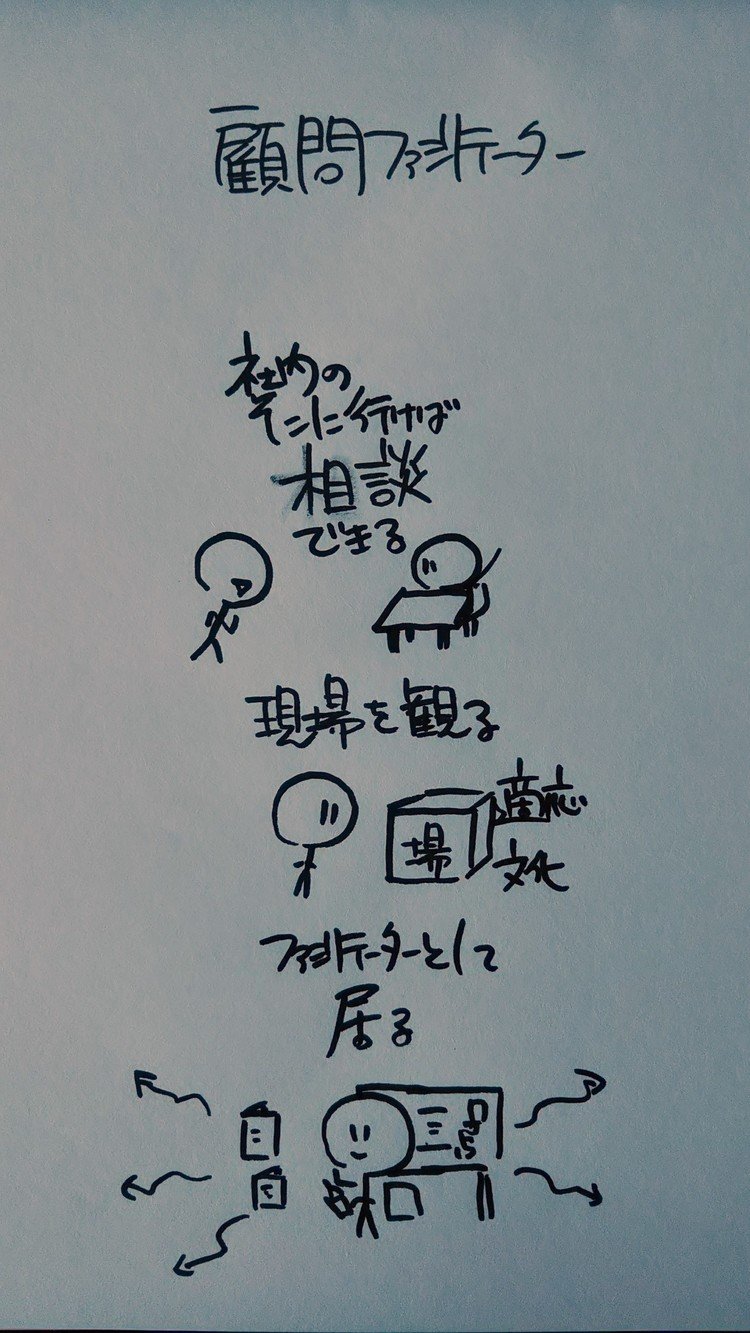 顧問ファシリテーター
社内の
そこに行けば
相談
できる
現場を観る
場
適応
文化
ファシリテーターとして
居る